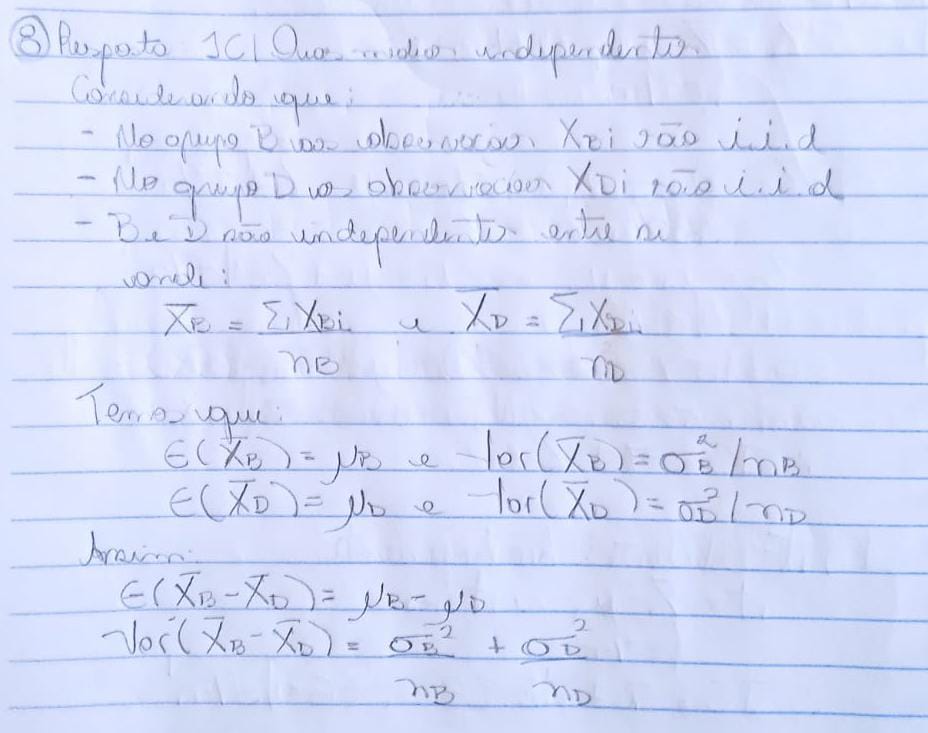 8) Resposta IC | Duas médias independentes
Considerando que:
- No grupo B as observações XBi são i.i.d
- No grupo D as observações XDi são i.i.d
- B e D são independentes entre si
X̄B = ΣXBi / nB e X̄D = ΣXDi / nD
Temos que:
E(X̄B) = μB e Var(X̄B) = σB² / nB
E(X̄D) = μD e Var(X̄D) = σD² / nD
Assim:
E(X̄B - X̄D) = μB - μD
Var(X̄B - X̄D) = σB² / nB + σD² / nD